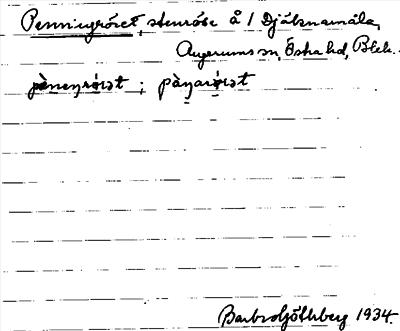 Penningröset, stenröse å 1 Djäknamåla,
Augerums sn, Östra hd, Blek.
pàneŋrö̀ıst ; pàŋarö̀ıst
Barbro Göthberg 1934.